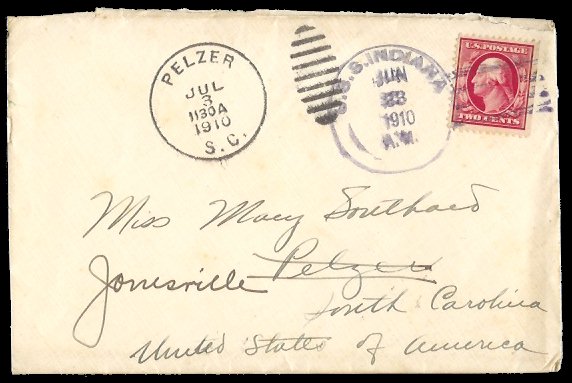 PELZER
JUL
3
1130A
1910
S.C.
U.S.S. INDIANA
JUN
23
1910
A.M.
U.S. POSTAGE
TWO CENTS
Miss Mary Southard
Jonesville Pelzer
South Carolina
United States of America